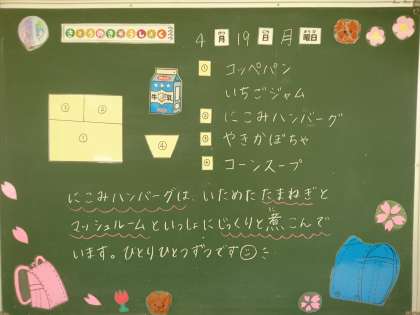 きょうのきゅうしょく
4月19日月曜日
① コッペパン
いちごジャム
② にこみハンバーグ
③ やきかぼちゃ
④ コーンスープ
① ②
③
④
牛乳
にこみハンバーグは、いためたたまねぎと
マッシュルームといっしょにじっくりと煮こんで
に
います。ひとりひとつずつです